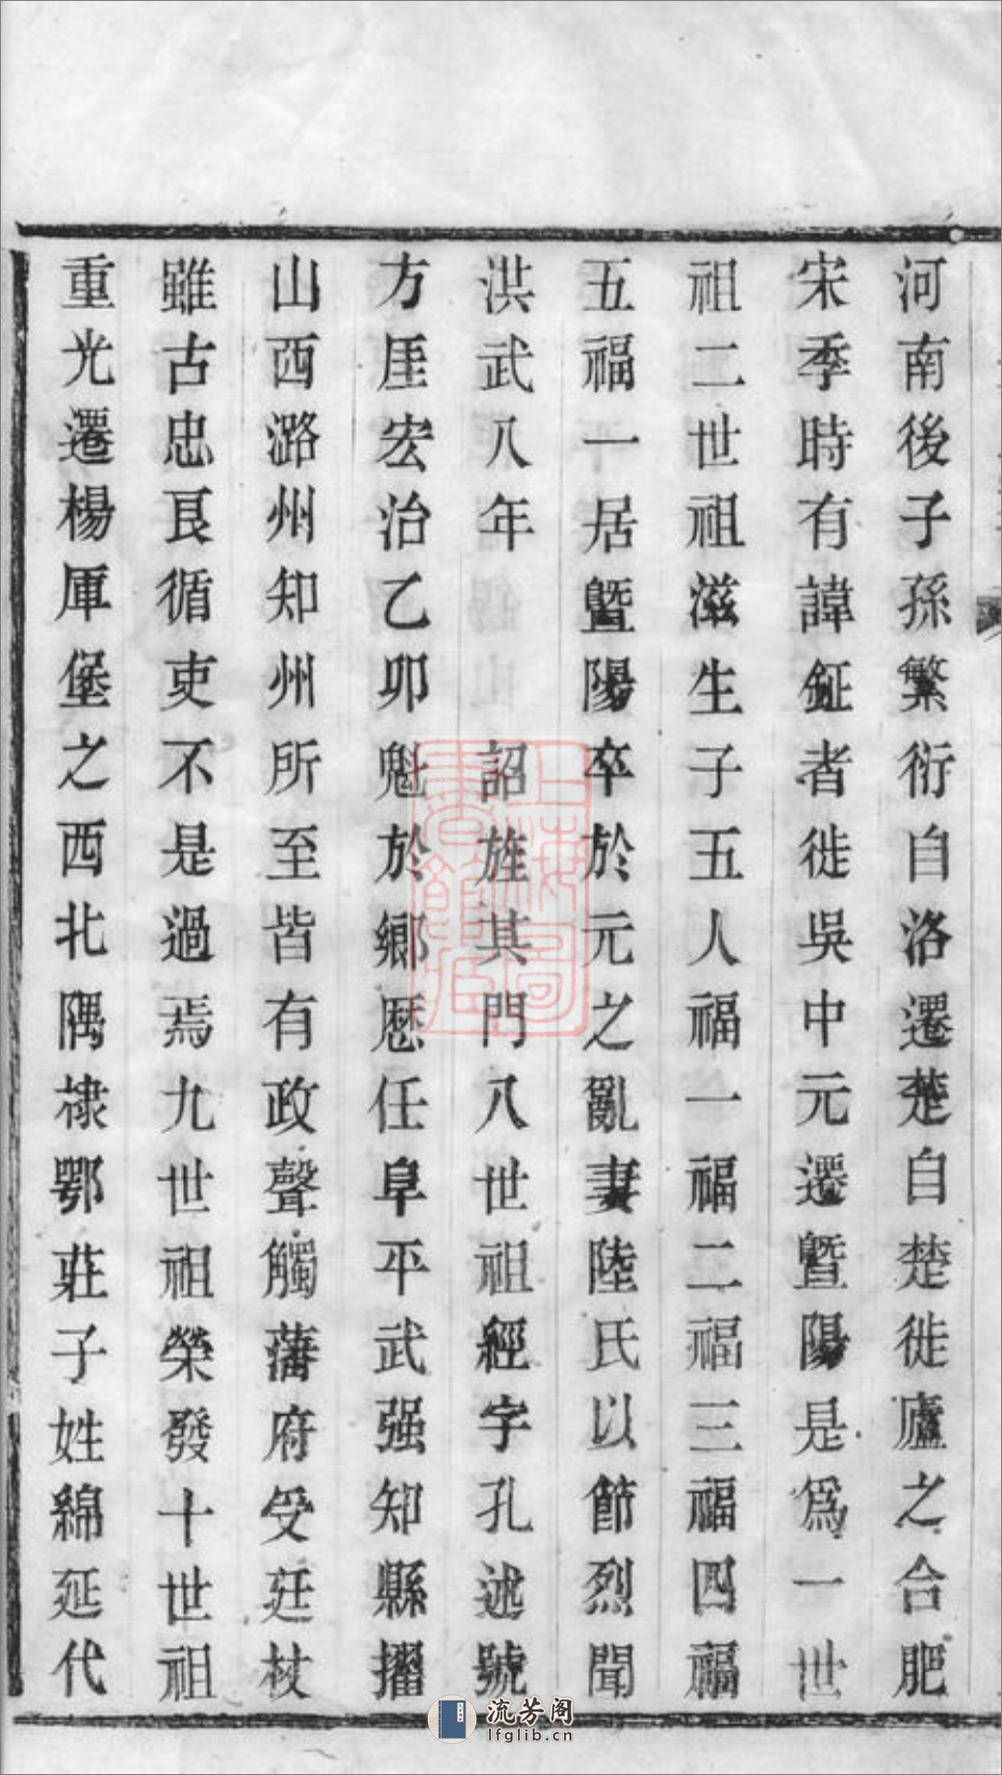 河南後子孫繁衍自洛遷楚自楚徙廬之合肥
宋季時有諱鉦者徙吳中元遷暨陽是爲一世
祖二世祖滋生子五人福一福二福三福四福
五福一居暨陽卒於元之亂妻陸氏以節烈聞
洪武八年 詔旌其門八世祖經字孔述號
方厓宏治乙卯魁於鄉歷任阜平武强知縣擢
山西潞州知州所至皆有政聲觸藩府受廷杖
雖古忠良循吏不是過焉九世祖榮發十世祖
重光遷楊厙堡之西北隅棣鄂莊子姓綿延代
上海圖書館藏
流芳阁
lfglib.cn